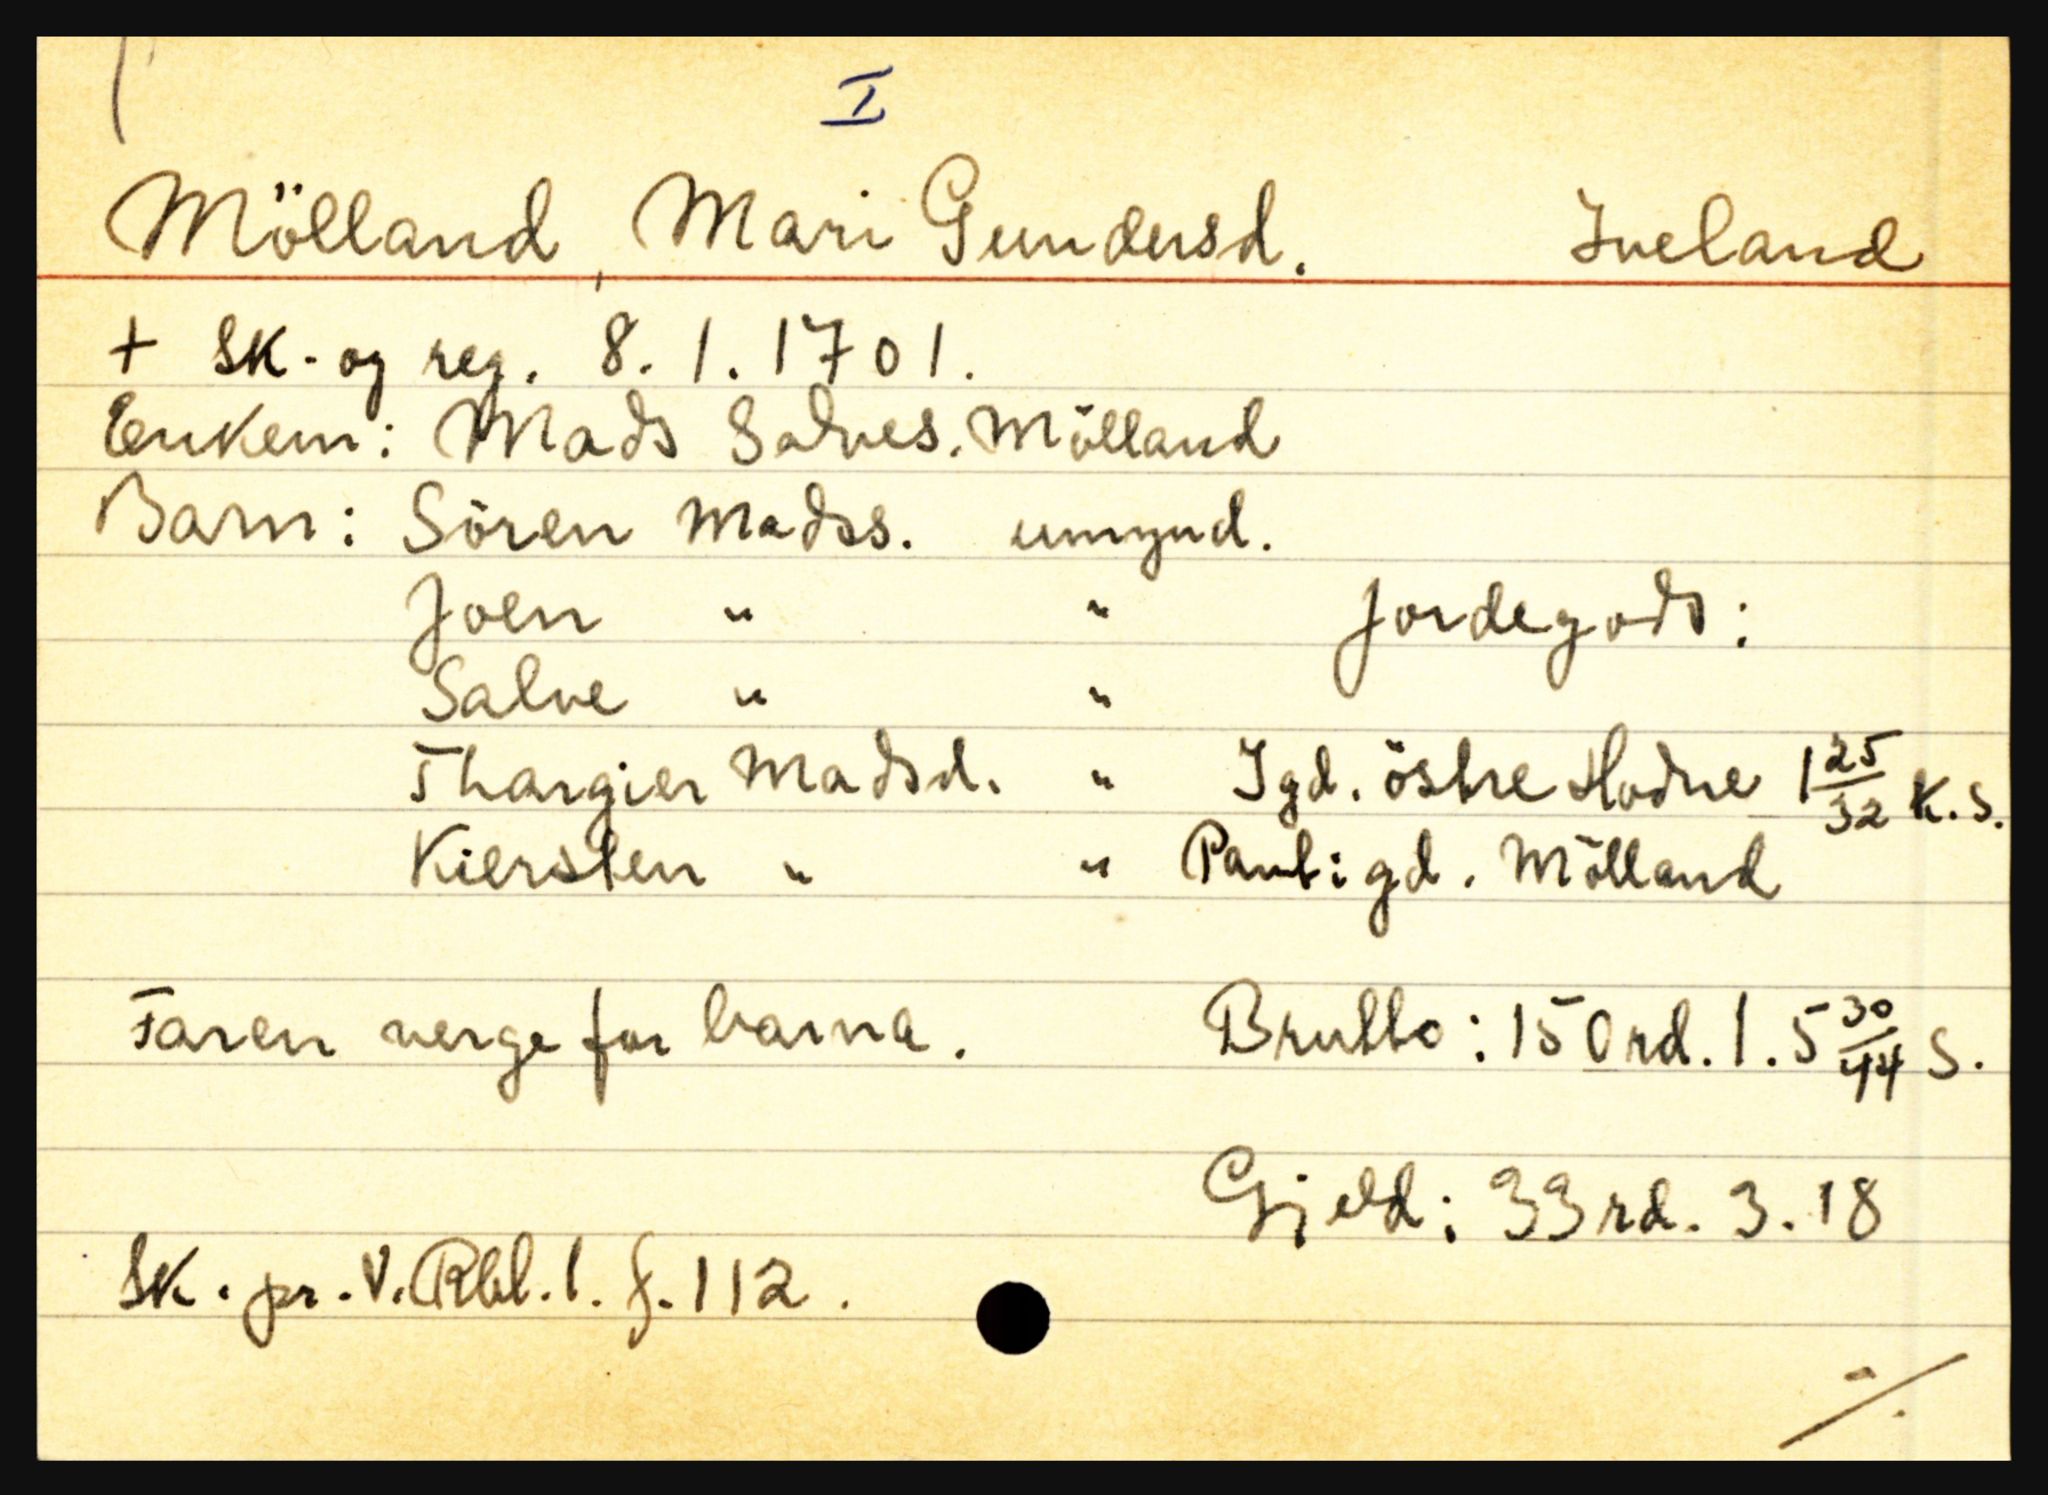 I
Mölland, Mari Gundersd. Iveland
+ Sk. og reg. 8.1.1701.
Enkem: Mads Salves. Mölland
Barn: Sören Madss. umynd.
Joen " " Jordegods:
Salve " "
Thargier Madsd. " I gd. östre Hodne 1 25/32 K.S.
Kiersten " " Pant i gd. Mölland
Faren verge for barna. Brutto: 150 rd. 1. 5 30/44 S.
Gjeld: 33 rd. 3. 18
Sk. pr. V. Rbl. 1. f. 112.